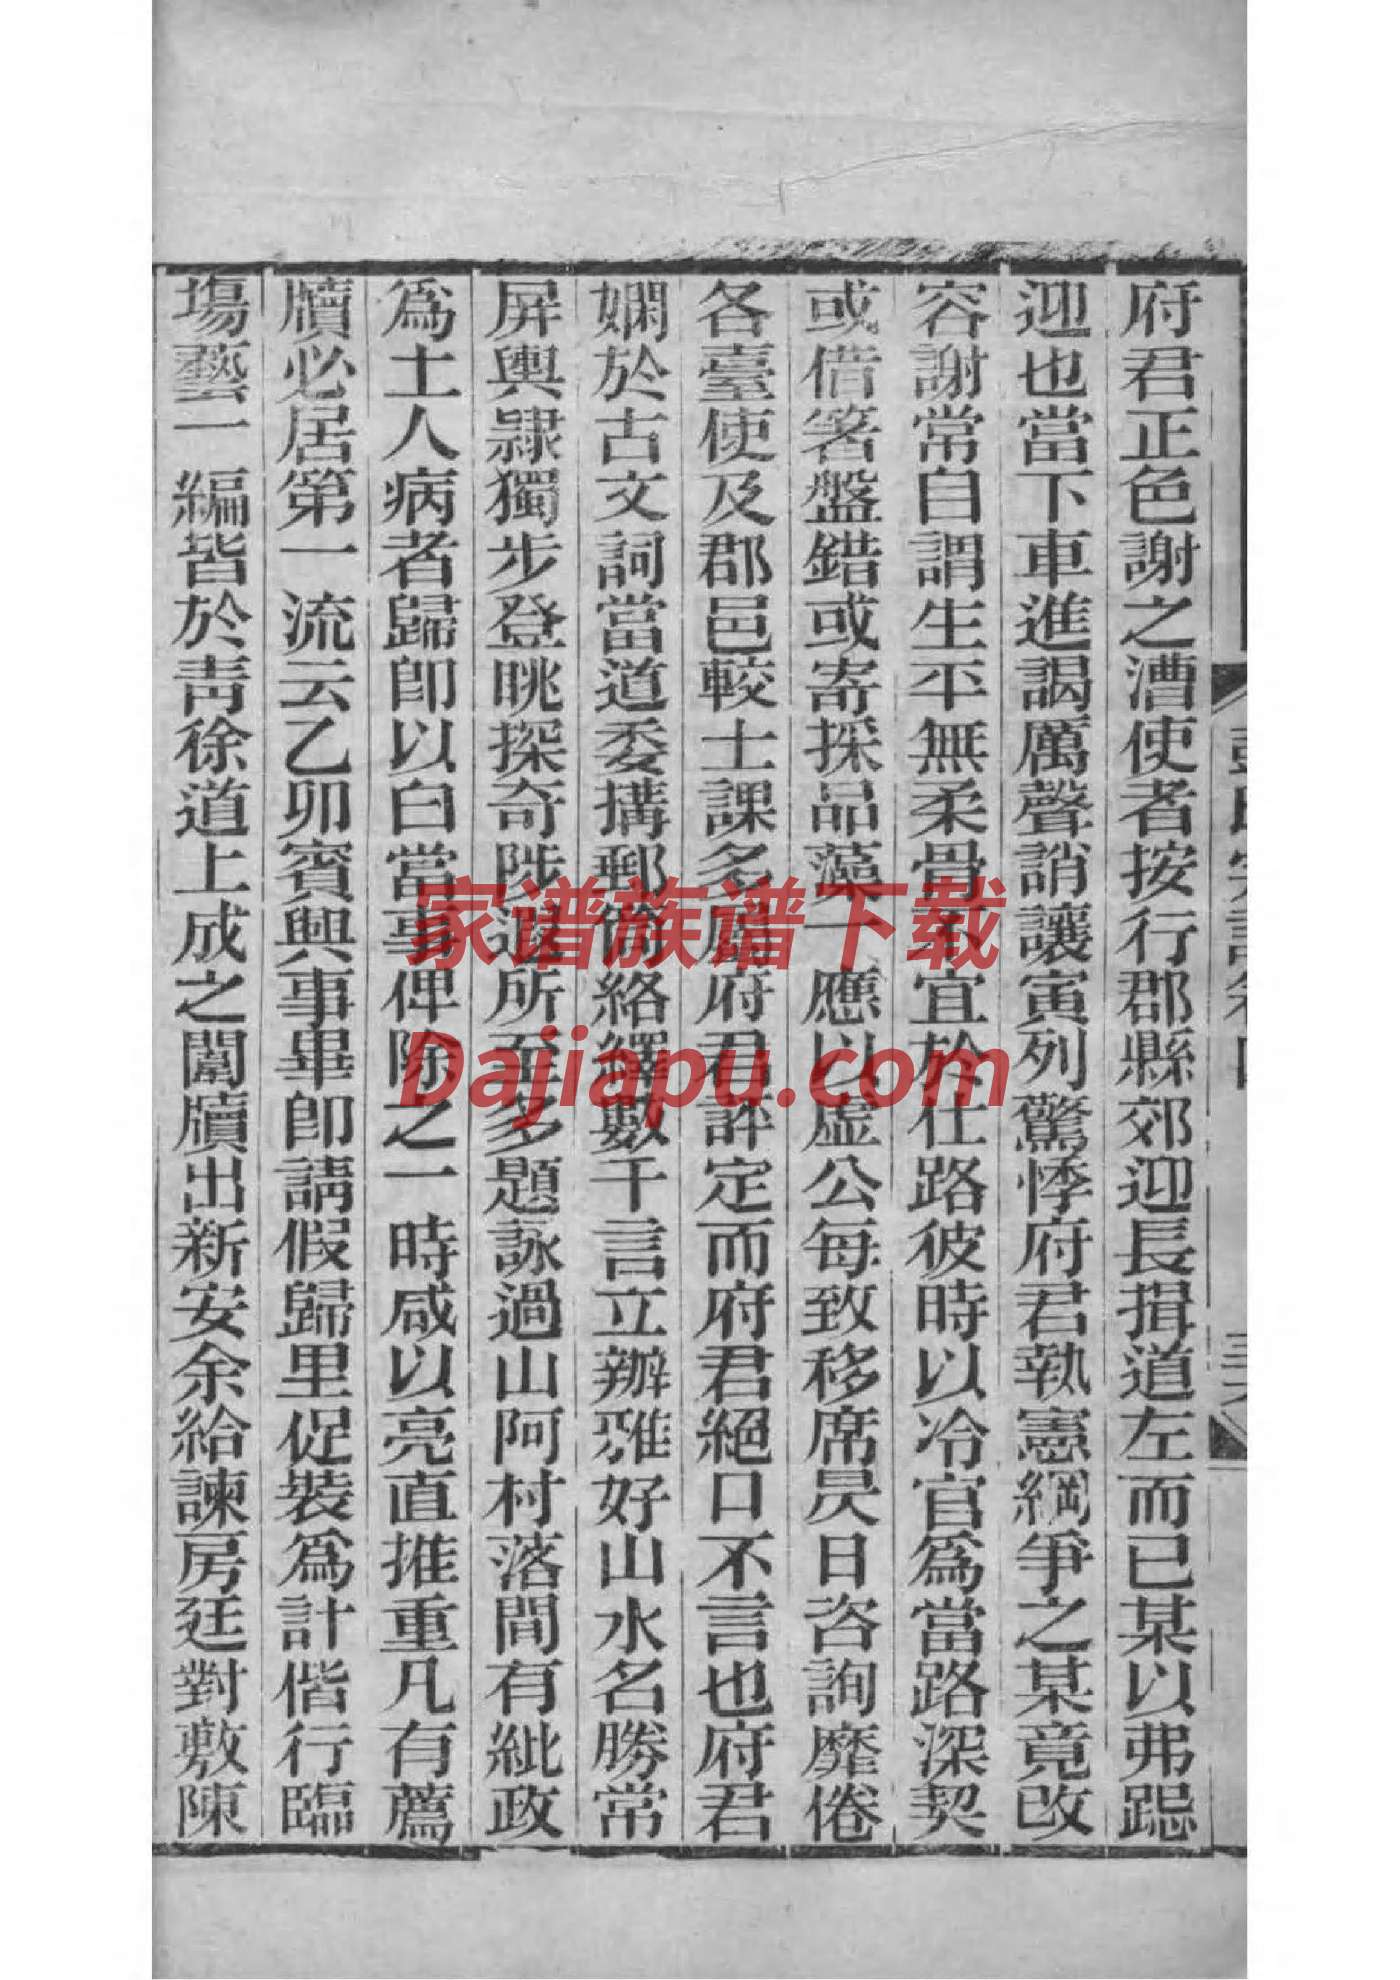 府君正色謝之漕使者按行郡縣郊迎長揖道左而已某以弗跽
迎也當下車進謁厲聲誚讓寅列驚悸府君執憲綱爭之某竟改
容謝常自謂生平無柔骨不宜於仕路彼時以冷官為當路深契
或借箸盤錯或寄採品藻一應以虛公每致移席炅日咨詢靡倦
各臺使及郡邑較士課多屬府君評定而府君絕口不言也府君
嫻於古文詞當道委搆郵筒絡繹數千言立辦雅好山水名勝常
屏輿隷獨步登眺探奇陟遐所至多題詠過山阿村落間有紕政
為土人病者歸卽以白當事俾除之一時咸以亮直推重凡有薦
牘必居第一流云乙卯賓興事畢卽請假歸里促裝為計偕行臨
塲藝一編皆於靑徐道上成之闈牘出新安余給諫房廷對敷陳
家谱族谱下载
Dajiapu.com